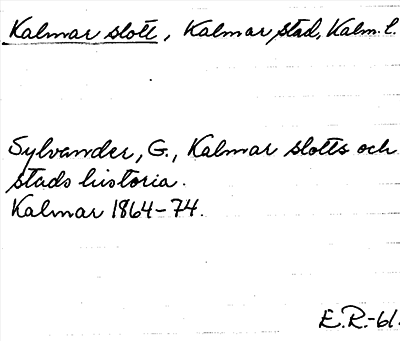 Kalmar slott, Kalmar stad, Kalm. l.
Sylvander, G., Kalmar slotts och
stads historia.
Kalmar 1864-74.
E.R.-61.